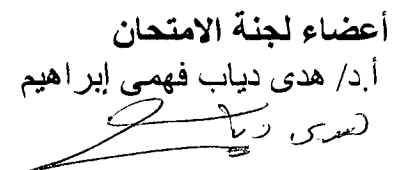 أعضاء لجنة الامتحان
أ.د/ هدى دياب فهمى إبراهيم
هدى دياب